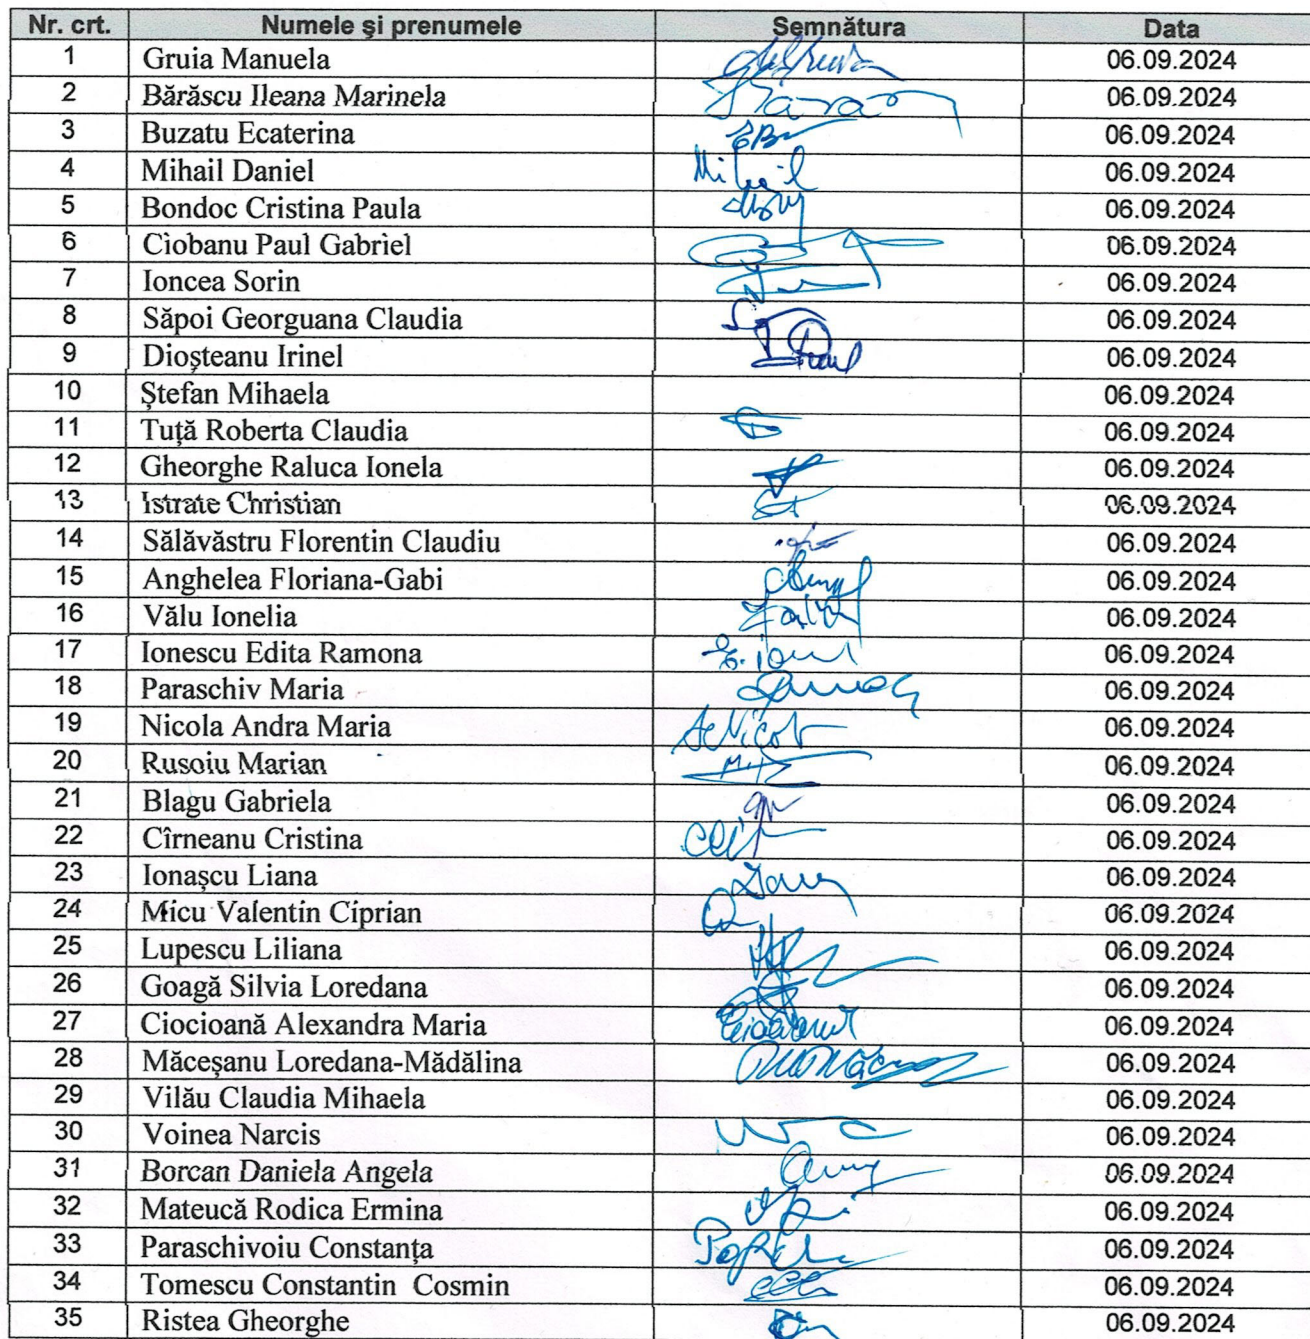 Nr. crt. Numele și prenumele Semnătura Data
1 Gruia Manuela 06.09.2024
2 Bărăscu Ileana Marinela 06.09.2024
3 Buzatu Ecaterina 06.09.2024
4 Mihail Daniel Mihail 06.09.2024
5 Bondoc Cristina Paula 06.09.2024
6 Ciobanu Paul Gabriel 06.09.2024
7 Ioncea Sorin 06.09.2024
8 Săpoi Georguana Claudia 06.09.2024
9 Dioșteanu Irinel 06.09.2024
10 Ștefan Mihaela 06.09.2024
11 Tuță Roberta Claudia 06.09.2024
12 Gheorghe Raluca Ionela 06.09.2024
13 Istrate Christian 06.09.2024
14 Sălăvăstru Florentin Claudiu 06.09.2024
15 Anghelea Floriana-Gabi 06.09.2024
16 Vălu Ionelia 06.09.2024
17 Ionescu Edita Ramona 06.09.2024
18 Paraschiv Maria 06.09.2024
19 Nicola Andra Maria 06.09.2024
20 Rusoiu Marian 06.09.2024
21 Blagu Gabriela 06.09.2024
22 Cîrneanu Cristina 06.09.2024
23 Ionașcu Liana 06.09.2024
24 Micu Valentin Ciprian 06.09.2024
25 Lupescu Liliana 06.09.2024
26 Goagă Silvia Loredana 06.09.2024
27 Ciocioană Alexandra Maria 06.09.2024
28 Măceșanu Loredana-Mădălina 06.09.2024
29 Vilău Claudia Mihaela 06.09.2024
30 Voinea Narcis 06.09.2024
31 Borcan Daniela Angela 06.09.2024
32 Mateucă Rodica Ermina 06.09.2024
33 Paraschivoiu Constanța 06.09.2024
34 Tomescu Constantin Cosmin 06.09.2024
35 Ristea Gheorghe 06.09.2024